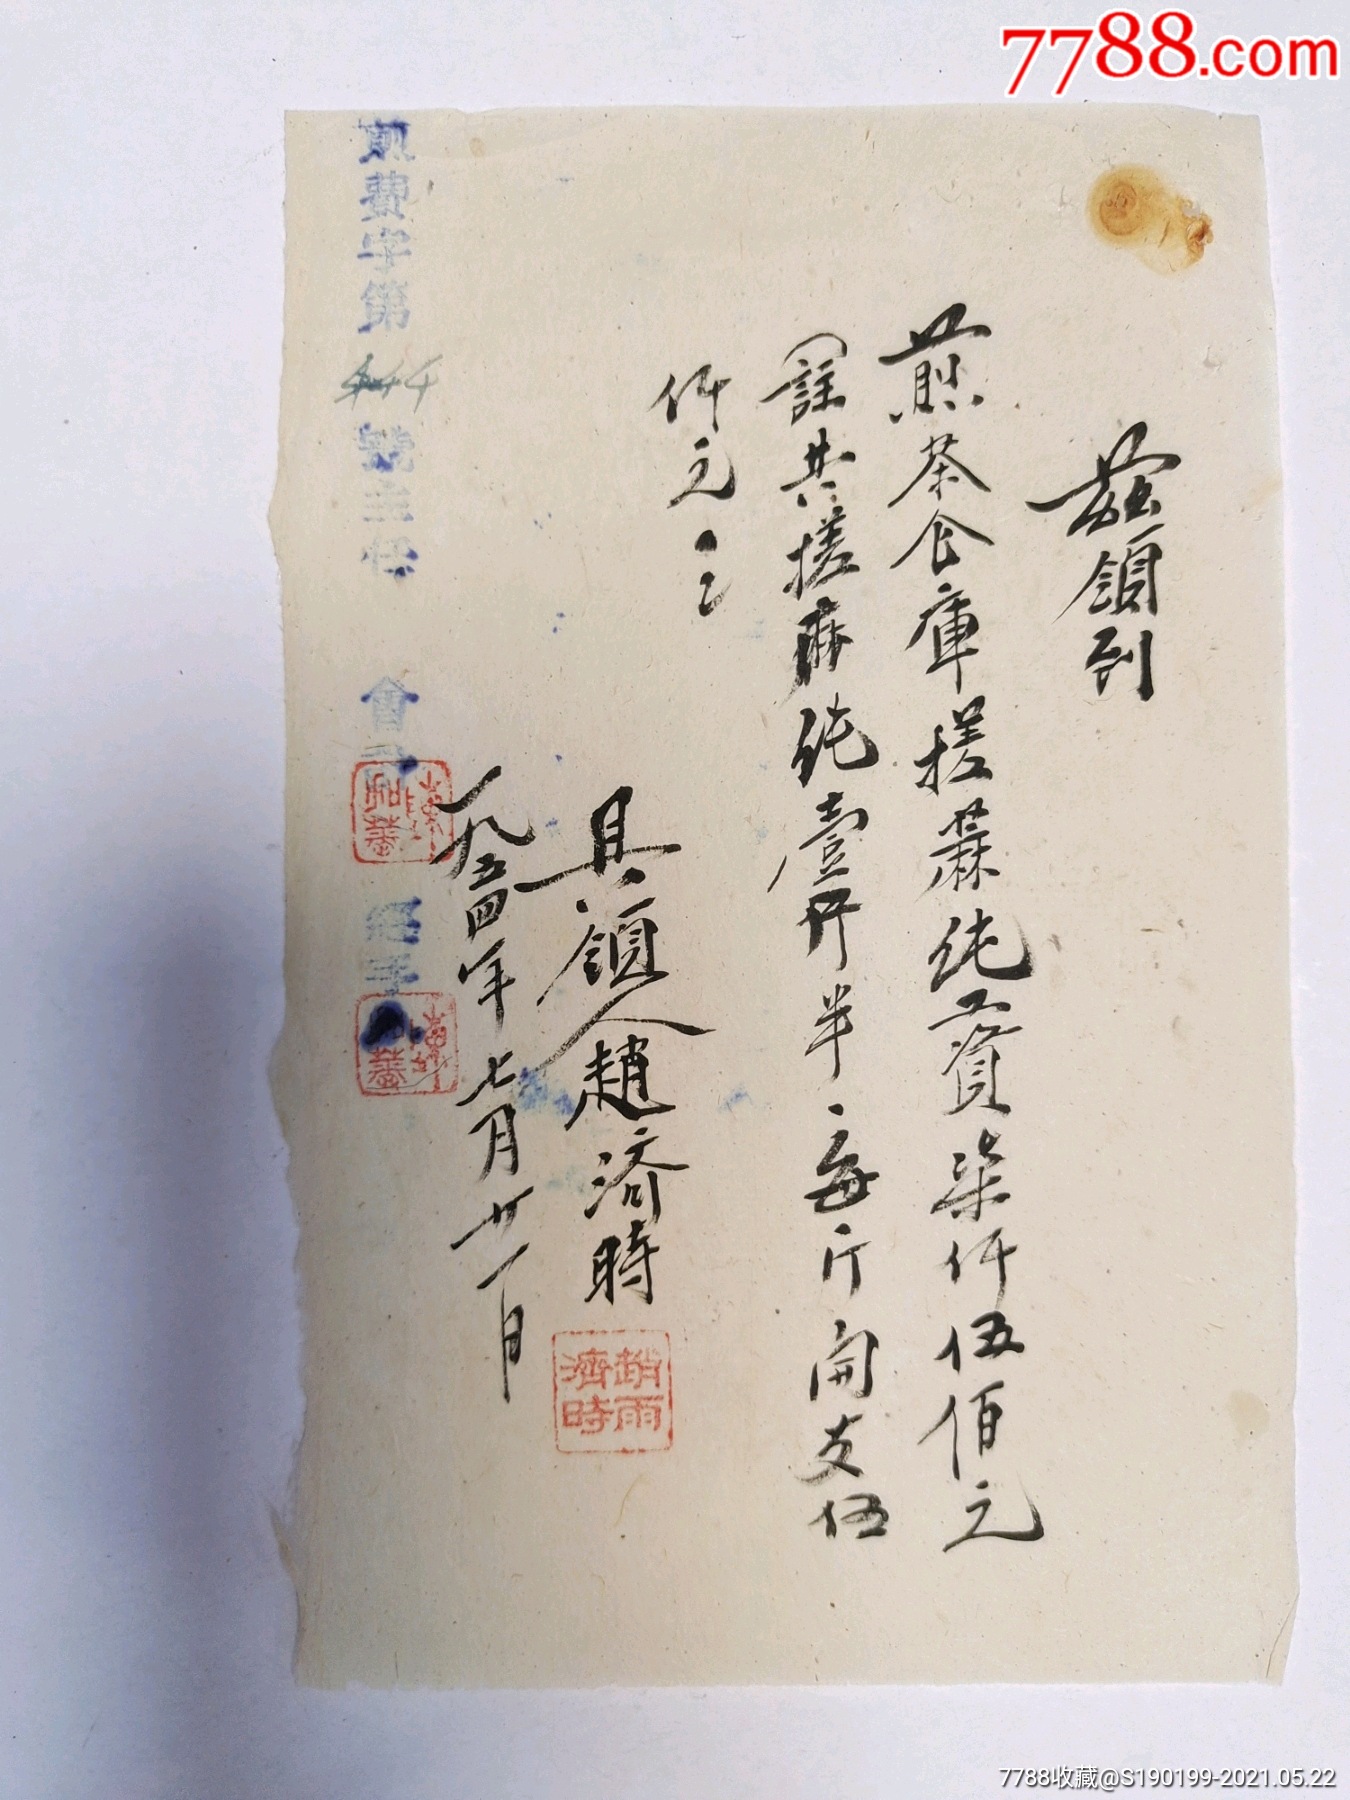 7788.com
茲領到
煎茶仓庫搓蔴純工資柒仟伍佰元
(註共搓麻純壹斤半.每斤開支伍
仟元)
具領人趙濟時
趙雨濟時
一九五四年七月廿一日
煎費字第444號主任 會計 經手
7788收藏@S190199-2021.05.22